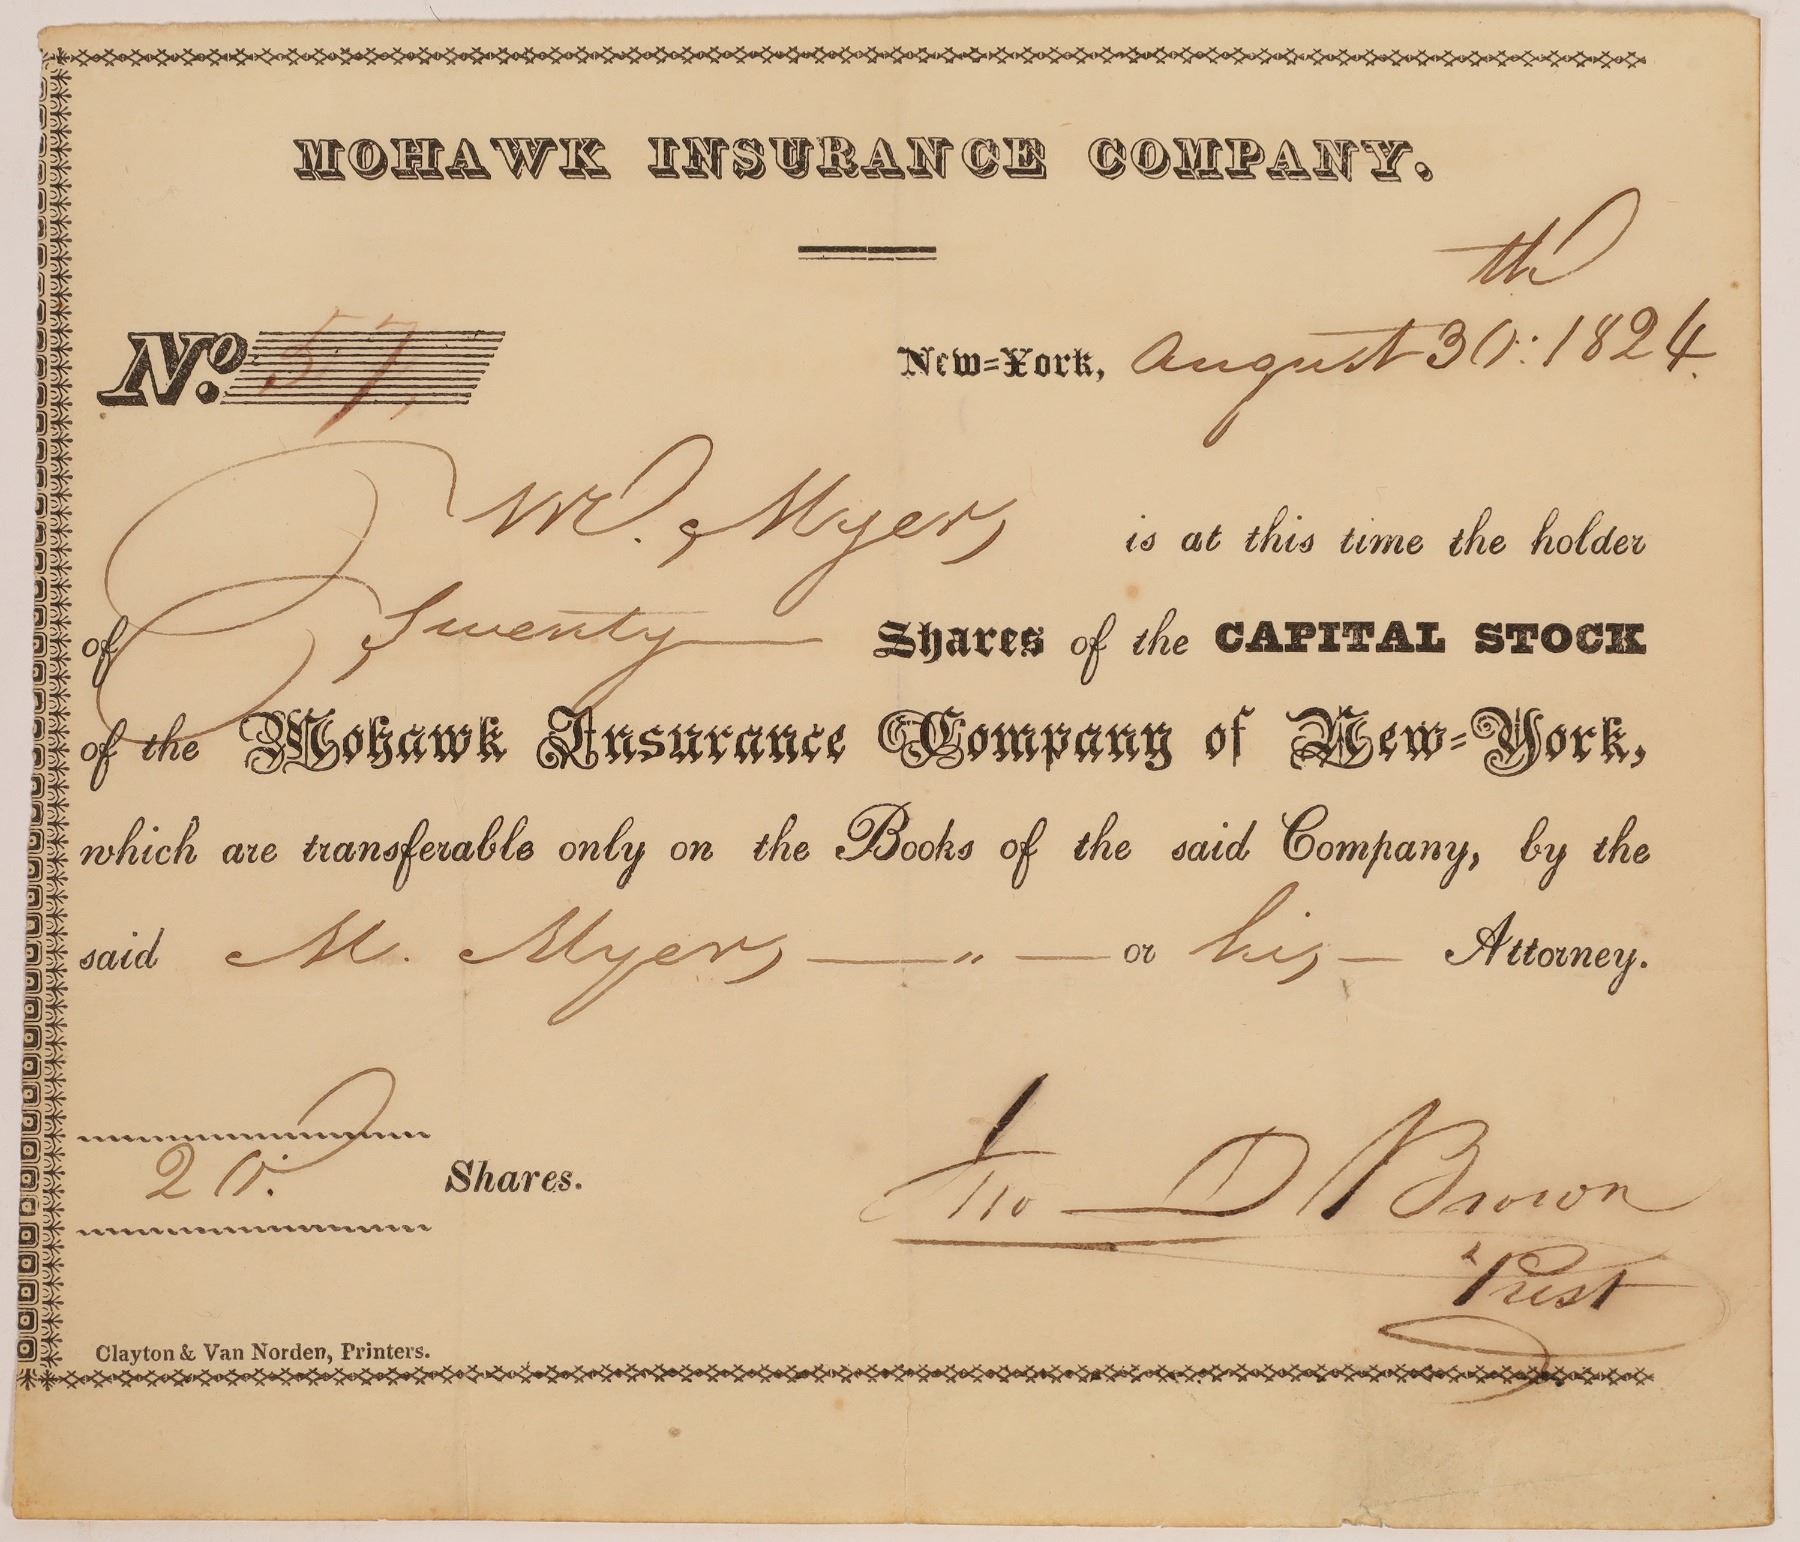 MOHAWK INSURANCE COMPANY.
No. 57,
New=York, August 30th: 1824.
M. Myers is at this time the holder
of Twenty Shares of the CAPITAL STOCK
of the Mohawk Insurance Company of New=York,
which are transferable only on the Books of the said Company, by the
said M. Myers — " — or his — Attorney.
20: Shares.
D Brown
Prest
Clayton & Van Norden, Printers.